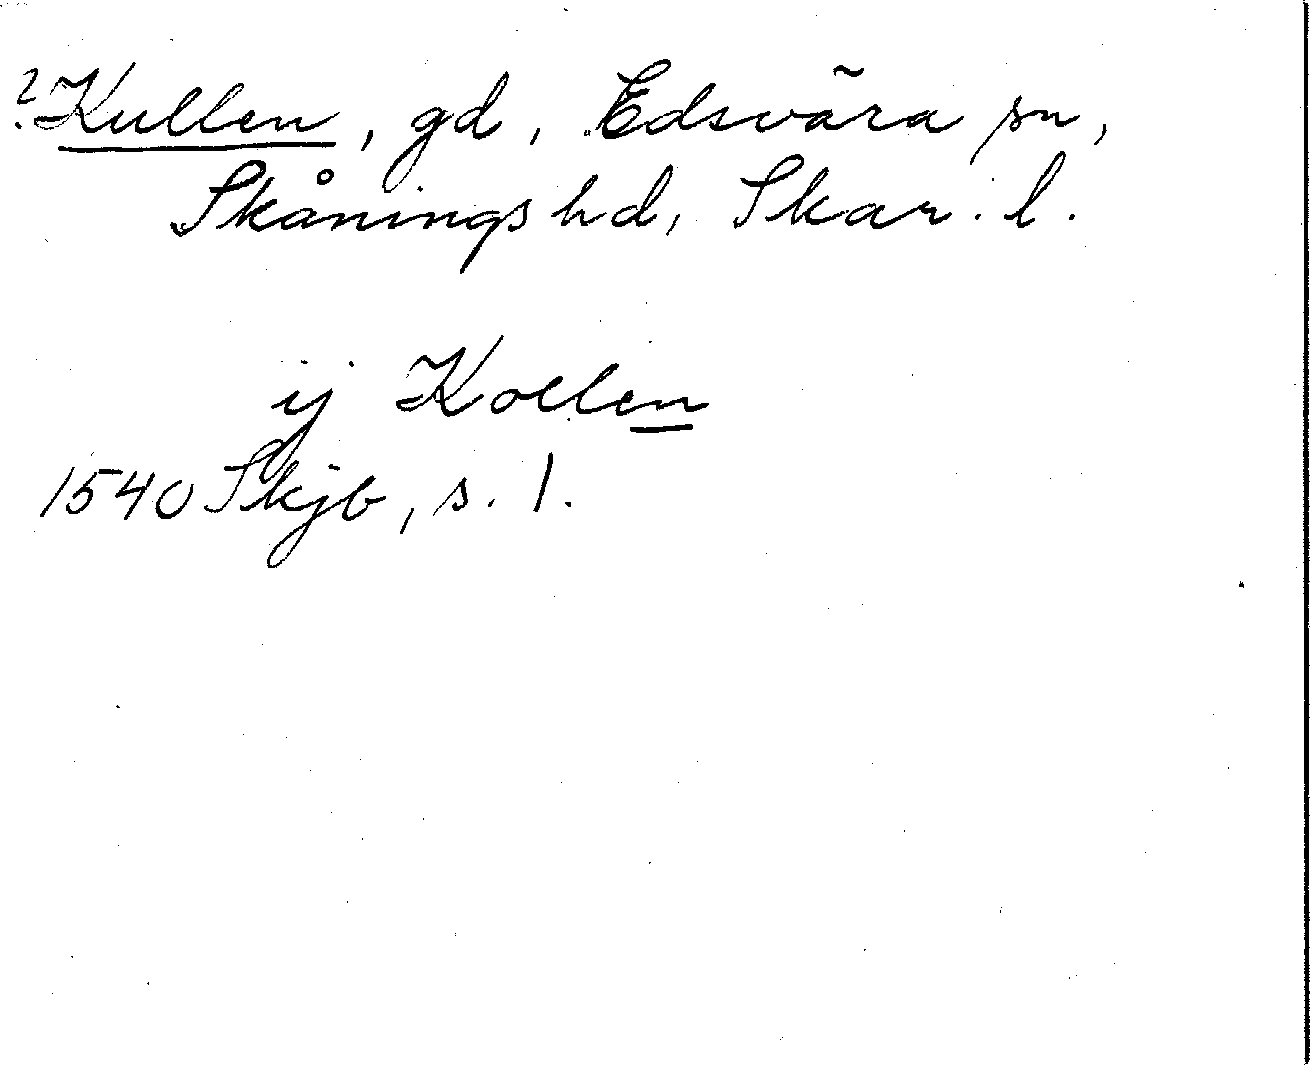 ? Kullen, gd, Edsvära sn,
Skånings hd, Skar. l.
ij Kollen
1540 Skjb, s. 1.